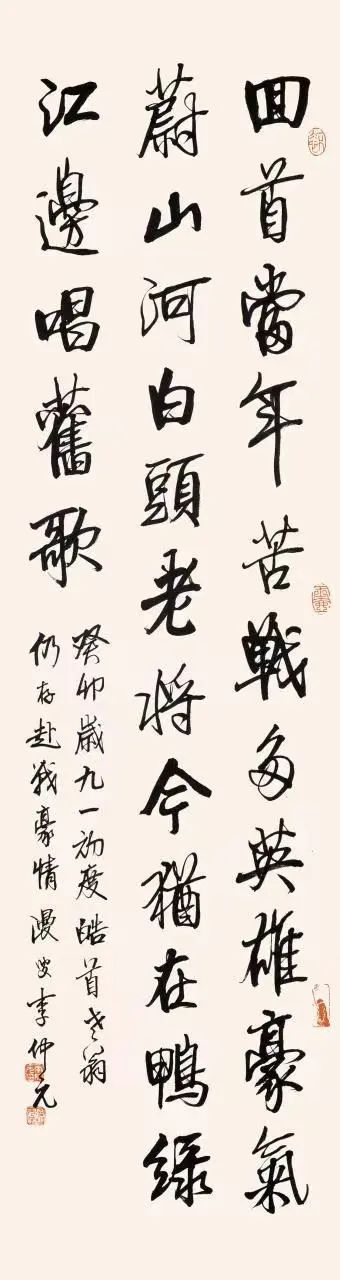 回首當年苦戰多英雄豪氣
蔚山河白頭老將今猶在鴨綠
江邊唱舊歌
癸卯歲九一初度皓首老翁
仍存赴戰豪情 漫叟李仲元